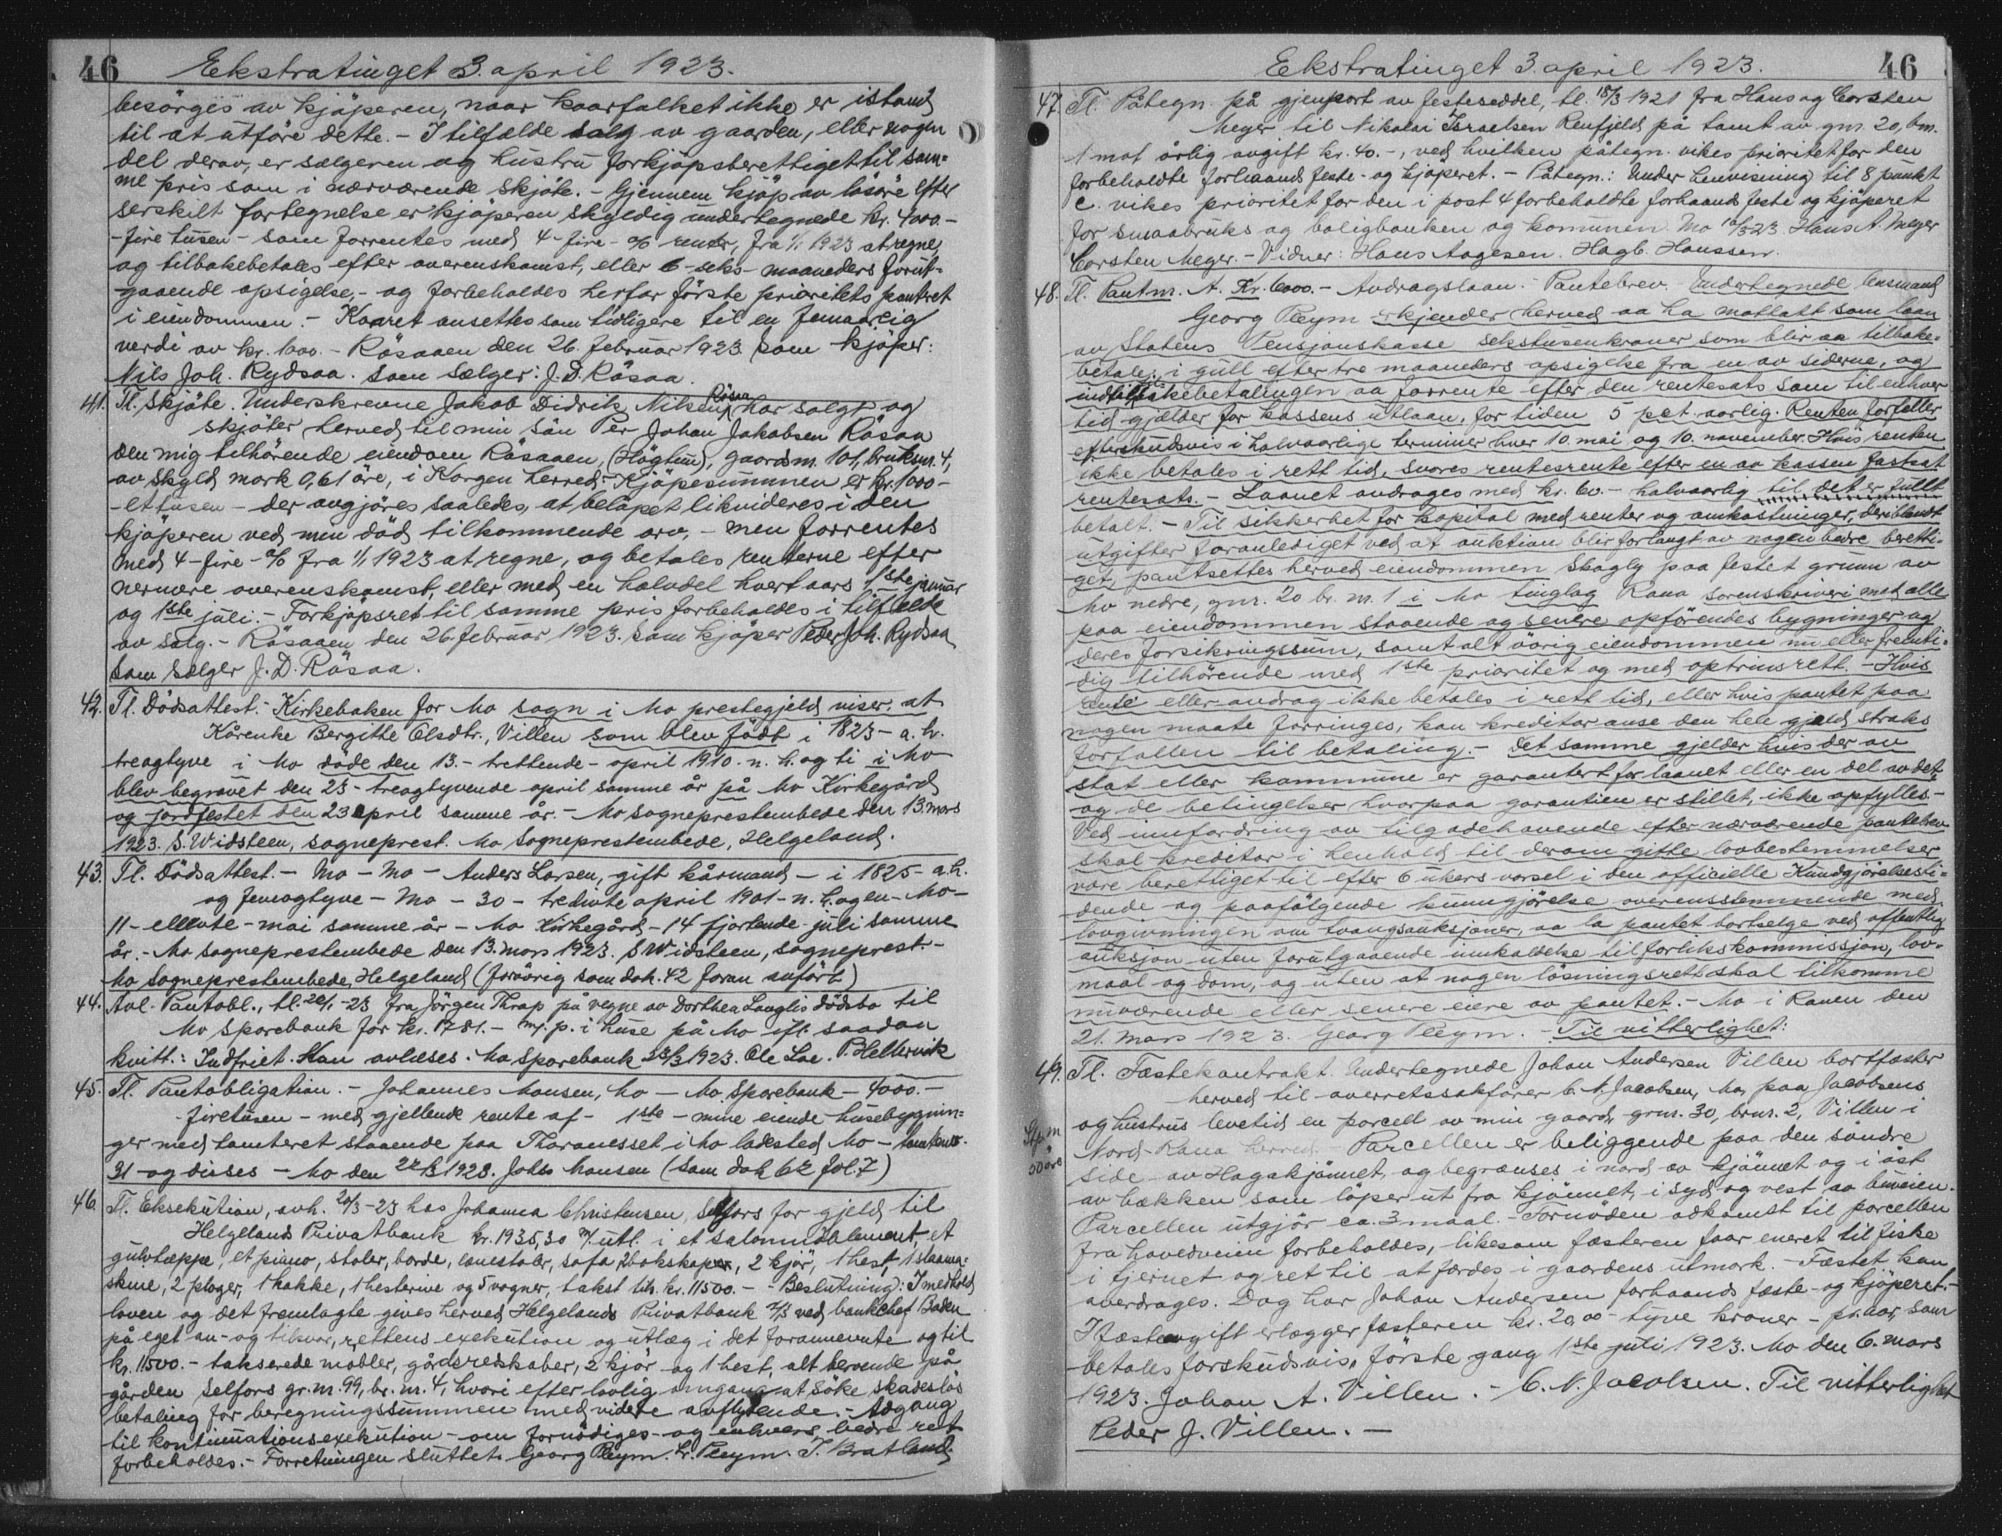 46 Ekstratinget 3. april 1923.
besörges av kjöperen, naar kaarfolket ikke er istand
til at utföre dette. - I tilfælde salg av gaarden, eller nogen
del derav, er sælgeren og hustru forkjöpsberettiget til sam-
me pris som i nærværende skjöte. - Gjennem kjöp av lösöre efter
serskilt fortegnelse er kjöperen skyldig undertegnede kr. 4000-
-fire tusen- som forrentes med 4-fire-% renter, fra 1/1 1923 at regne
og tilbakebetales efter overenskomst, eller 6-seks-maaneders forut-
gaaende opsigelse, - og forbeholdes herfor förste prioritets pantret
i eiendommen. - Kaaret ansettes som tidligere til en femaarlig
verdi av kr. 1000. - Rösaaen den 26. februar 1923. Som kjöper:
Nils Joh. Rydsaa. Som sælger: J. D. Rösaa.
41. Tl. Skjöte. Underskrevne Jakob Didrik Nilsen Rösaa har solgt og
skjöter herved til min sön Per Johan Jakobsen Rösaa
den mig tilhörende eiendom Rösaaen, (Höglun), gaardsnr. 101, bruksnr. 4,
av skyld mark 0,61 öre, i Korgen herred. - Kjöpesummen er kr. 1000-
-ettusen- der avgjöres saaledes, at belöpet likvideres i den
kjöperen ved min död tilkommende arv, - men forrentes
med 4-fire-% fra 1/1 1923 at regne, og betales renterne efter
nermere overenskomst, eller med en halvdel hvert aars 1ste januar
og 1ste juli. - Forkjöpsret til samme pris forbeholdes i tilfælde
av salg. - Rösaaen den 26. februar 1923. Som kjöper Peder Joh. Rydsaa
Som sælger J. D. Rösaa.
42. Tl. Dödsattest. - Kirkeboken for Mo sogn i Mo prestegjeld viser, at
Kårenke Bergitte Olsdtr., Villen som blev födt i 1823- a. h.
treogtyve i Mo döde den 13.- trettende- april 1910. n. h. og ti i Mo
blev begravet den 23- treogtyvende april samme år på Mo Kirkegård
og jordfestet den 23 april samme år. - Mo sogneprestembede den 13. mars
1923. S. Widsteen, sogneprest. Mo Sogneprestembede, Helgeland.
43. Tl. Dödsattest. - Mo - Mo - Anders Larsen, gift kårmand - i 1825- a. h.
og femogtyve - Mo - 30 - tredivte april 1901- n. h. og en - Mo -
11- ellevte - mai samme år - Mo Kirkegård - 14 fjortende juli samme
år. - Mo sogneprestembede den 13. mars 1923. S. Widsteen, sogneprest. -
Mo Sogneprestembede, Helgeland (forövrig som dok. 42 foran anfört)
44. Avl. Pantobl., tl. 20/1-23 fra Jörgen Thrap på vegne av Dorthea Langlis dödsbo til
Mo Sparebank for kr. 1781.- m. p. i huse på Mo ifl. saadan
kvitt.: Indfriet. Kan avlæses. Mo Sparebank 23/3 1923. Ole Loe. P. Hellervik
45. Tl. Pantobligation. - Johannes Monsen, Mo - Mo Sparebank - 4000.-
firetusen - med gjellende rente af - 1ste - mine eiende husebygnin-
ger med tomteret staaende paa Thoranesset i Mo ladested Mo - tomtenr.
31 - og disses - Mo den 22/3 1923. Johs Monsen (Som dok 62 fol. 7)
46. Tl. Eksekution, avh. 20/3-23 hos Johanna Christensen, Selfors for gjeld til
Helgelands Privatbank kr. 1935,30 m/ utl. i et salonmöblement, et
gulvteppe, et piano, stoler, borde, lænestoler, sofa, 2 bokskaper, 2 kjör, 1 hest, 1 slaama-
skine, 2 ploger, 1 hakke, 1 hesterive og 5 vogner, takst til. kr. 11500. - - Beslutning: I medhold
loven og det fremlagte gives herved Helgelands Privatbank ved bankchef Baden
på eget an- og tilsvar, rettens exekution og utlæg i det forannevnte og til
kr. 11500.- takserede møbler, gårdsredskaper, 2 kjör og 1 hest, alt beroende på
gården Selfors gr. nr. 99, br. nr. 4, hvori efter lovlig omgang at söke skadeslös
betaling for beregningssummen med videre avflytende. - Adgang
til kontinuationsexekution - om fornödiges - og enhvers bedre ret
forbeholdes. - Forretningen sluttet. Georg Pleym. L. Pleym. T. Bratland
Ekstratinget 3. april 1923. 46
47. Tl. Påtegn. på gjenpart av festeseddel, tl. 15/3 1921 fra Hans og Corsten
Meyer til Nikolai Israelsen Renfjeld på tomt av gnr. 20, bnr.
1 mot årlig avgift kr. 40.-, ved hvilken påtegn. vikes prioritet for den
forbeholdte forhaands feste- og kjöperet. - Påtegn.: Under henvisning til 8 punkt
c. vikes prioritet for den i post 4 forbeholdte forhaands feste og kjöperet
for smaabruks og boligbanken og kommunen. Mo 10/3 23. Hans A. Meyer
Corsten Meyer. - Vidner: Hans Aagesen. Hagb. Hanssen.
48. Tl. Pantm. A. Kr. 6000. - Avdragslaan. - Pantebrev. Undertegnede lensmand
Georg Pleym erkjender herved aa ha mottatt som laan
av Statens Pensjonskasse sekstusenkroner som blir aa tilbake-
betale i gull efter tre maaneders opsigelse fra en av siderne, og
indtil tilbakebetalingen aa forrente efter den rentesats som til enhver
tid gjelder for kassens utlaan, for tiden 5 pct. aarlig. Renten forfaller
efterskudsvis i halvaarlige terminer hver 10. mai og 10. november. Hvis renten
ikke betales i rett tid, svares rentesrente efter en av kassen fastsat
rentesats. - Laanet avdrages med kr. 60.- halvaarlig til det er fullt
betalt. - Til sikkerhet for kapital med renter og omkostninger, deriblandt
utgifter foranlediget ved at auktion blir forlangt av nogen bedre beretti-
get, pantsettes herved eiendommen Skogly paa festet grunn av
Mo nedre, gnr. 20 br. nr. 1 i Mo tinglag Rana sorenskriveri med alle
paa eiendommen staaende og senere opförendes bygninger og
deres forsikringssum, samt alt övrig eiendommen nu eller fremti-
dig tilhörende med 1ste prioritet og med optrinsrett. - Hvis
rente eller avdrag ikke betales i rett tid, eller hvis pantet paa
nogen maate forringes, kan kreditor anse den hele gjeld straks
forfallen til betaling. - Det samme gjelder hvis der av
stat eller kommune er garantert for laanet eller en del av det,
og de betingelser hvorpaa garantien er stillet, ikke opfylles -
Ved innfordring av tilgodehavende efter nærværende pantebrev
skal kreditor i henhold til derom gitte lovbestemmelser
være berettiget til efter 6 ukers varsel i den officielle Kundgjörelsesti-
dende og paafölgende kunngjörelse overensstemmende med
lovgivningen om tvangsauksjoner, aa la pantet bortselge ved offentlig
auksjon uten forutgaaende innkaldelse til forlikskommissjon, lov-
maal og dom, og uten at nogen lösningsrett skal tilkomme
nuværende eller senere eiere av pantet. - Mo i Ranen den
21. mars 1923. Georg Pleym. - Til vitterlighet:
49. Tl. Fæstekontrakt. Undertegnede Johan Andersen Villen bortfæster
herved til overretssakförer C. N. Jacobsen, Mo, paa Jacobsens
og hustrus levetid en parcell av min gaard, grnr. 30, brnr. 2, Villen i
Nord-Rana herred. Parcellen er beliggende paa den söndre
side av Hagakjönnet, og begrænses i nord av kjönnet og i öst
av bækken som löper ut fra kjönnet, i syd og vest av bueien.
Parcellen utgjör ca. 3 maal. - Fornöden adkomst til parcellen
fra hovedveien forbeholdes, likesom fæsteren faar eneret til fiske
i tjernet og ret til at færdes i gaardens utmark. - Fæstet kan
overdrages. Dog har Johan Andersen forhaands fæste- og kjöperet. -
I fæsteavgift erlægger fæsteren kr. 20,00 - tyve kroner - pr. aar, som
betales forskudsvis, förste gang 1ste juli 1923. Mo den 6. mars
1923. Johan A. Villen. - C. N. Jacobsen. Til vitterlighet
Peder J. Villen. -